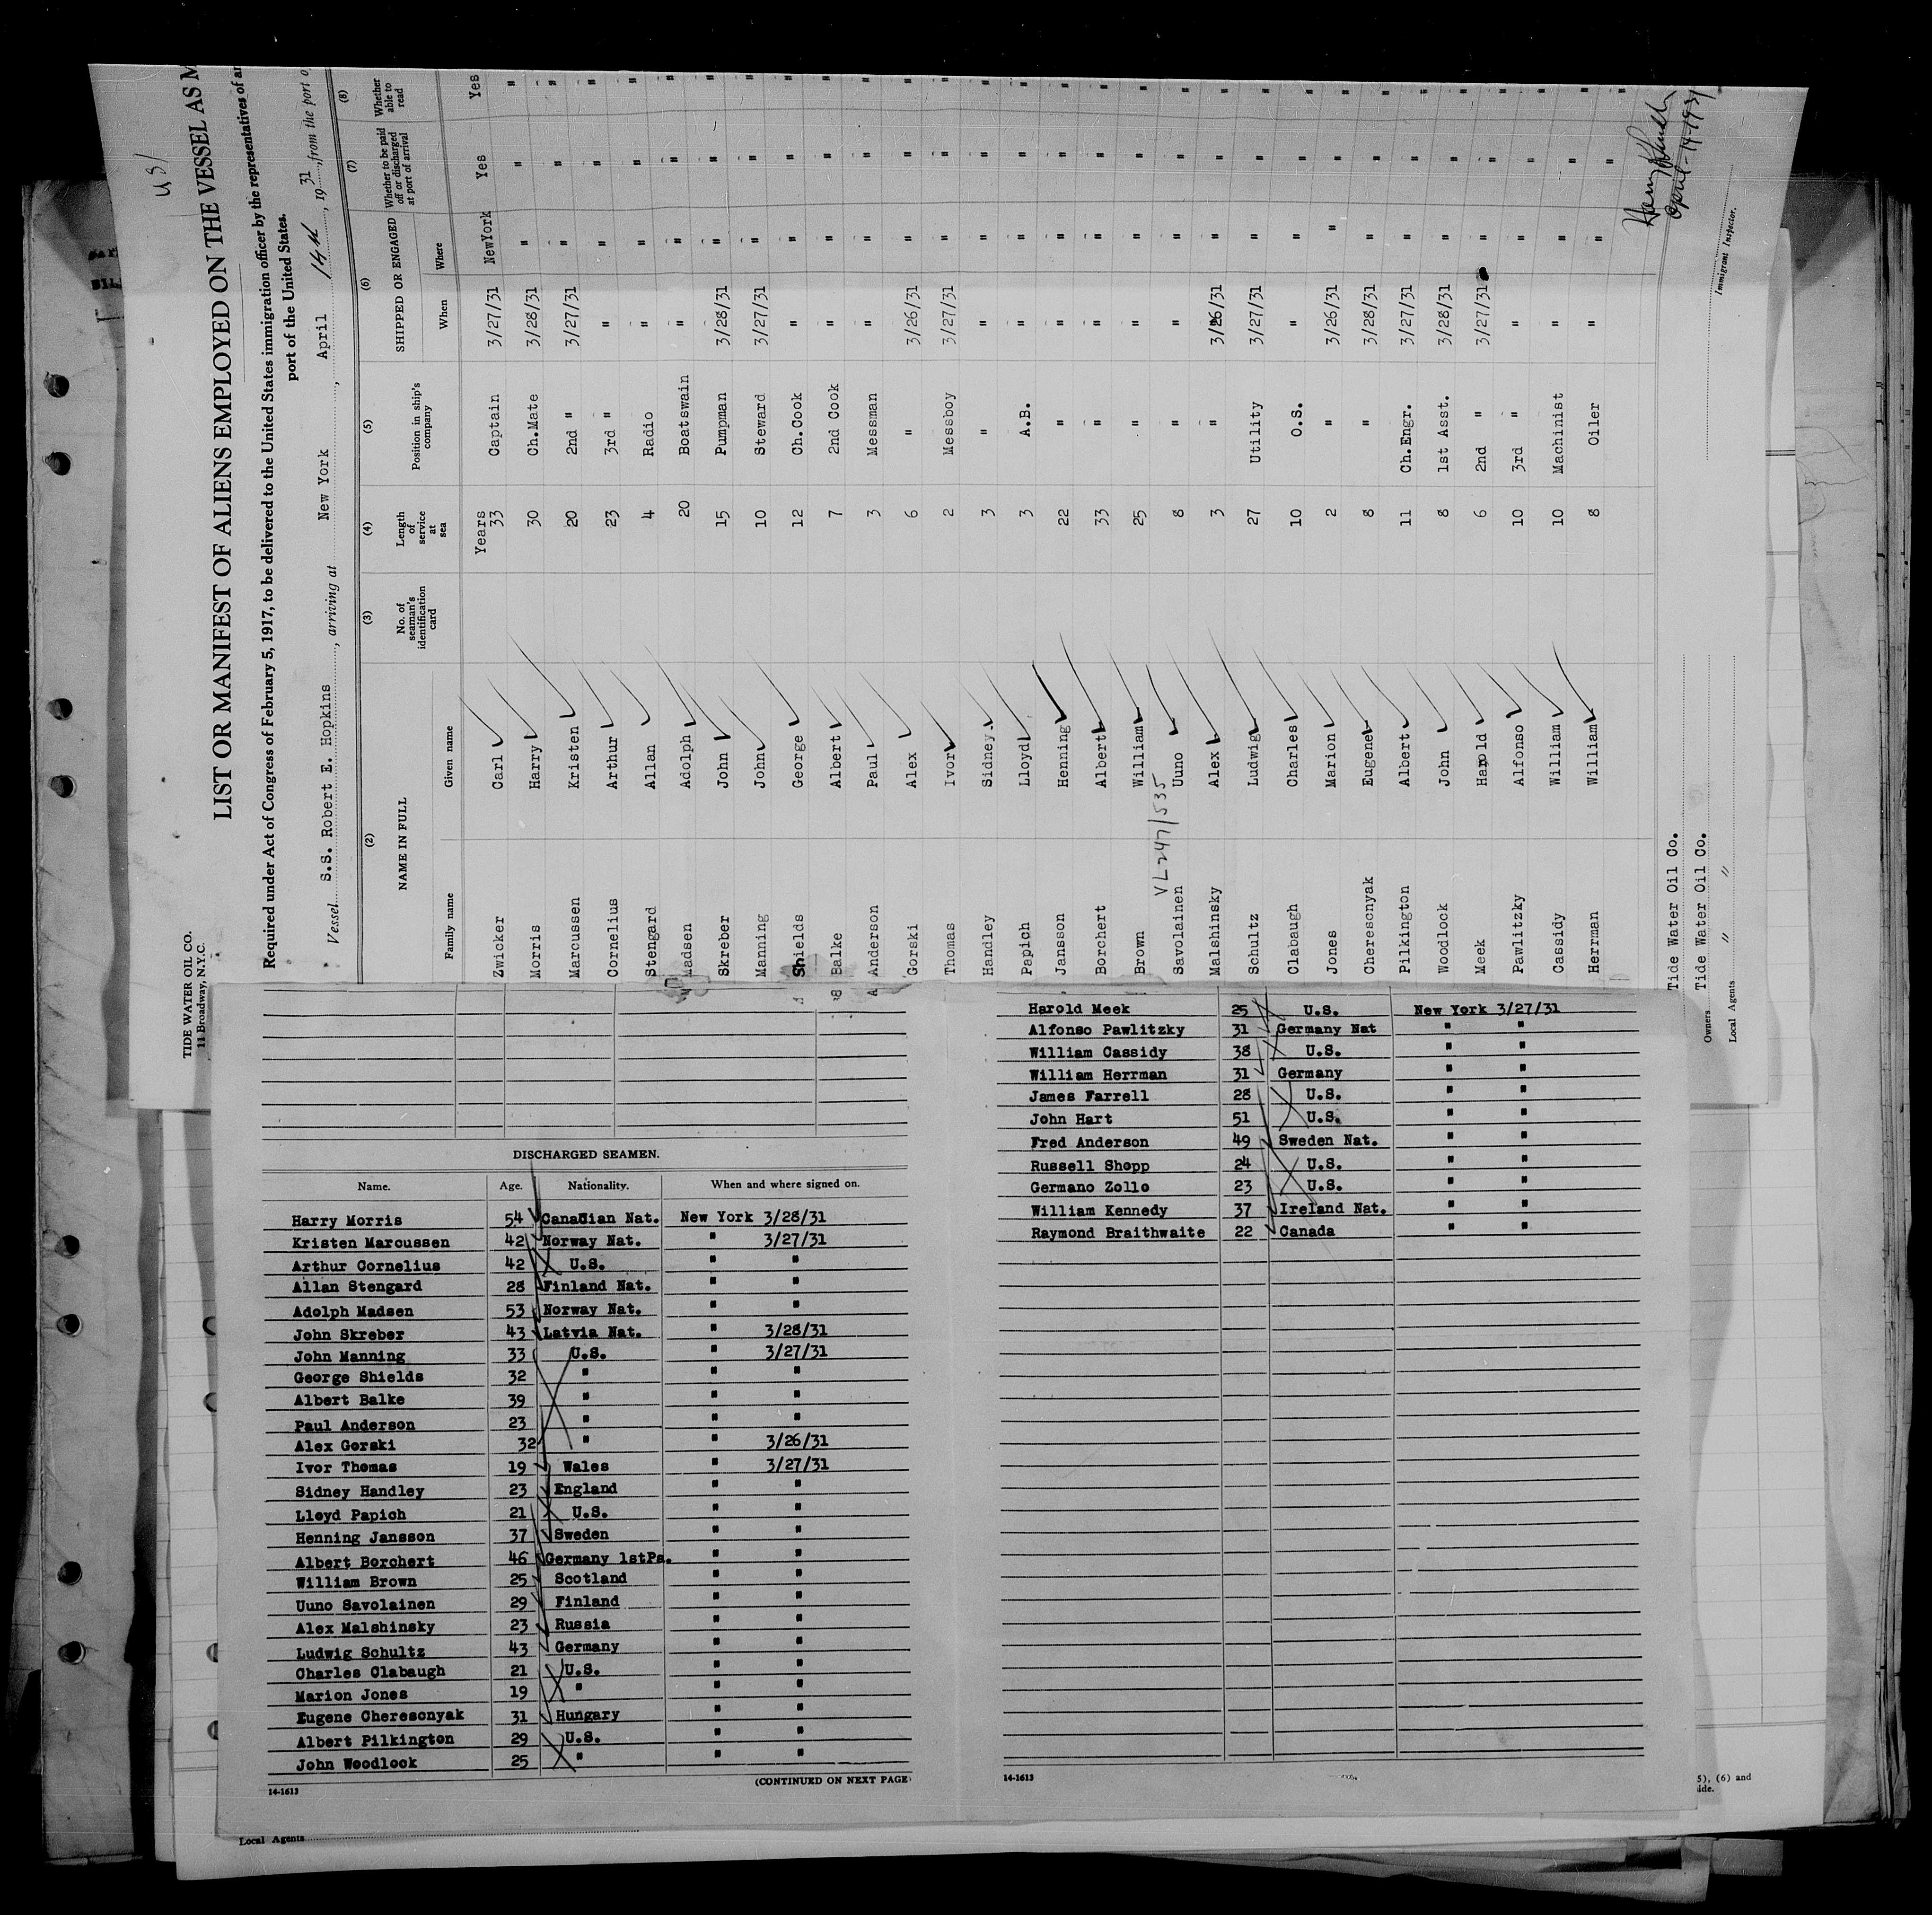 US/
TIDE WATER OIL CO.
11 Broadway, N.Y.C.
LIST OR MANIFEST OF ALIENS EMPLOYED ON THE VESSEL AS M
Required under Act of Congress of February 5, 1917, to be delivered to the United States immigration officer by the representatives of an
port of the United States.
Vessel S.S. Robert E. Hopkins, arriving at New York, April 14th, 1931, from the port o
(2) (3) (4) (5) (6) (7) (8)
NAME IN FULL No. of seaman's identification card Length of service at sea Position in ship's company SHIPPED OR ENGAGED Whether to be paid off or discharged at port of arrival Whether able to read
Family name Given name When Where
Years
Zwicker Carl 33 Captain 3/27/31 NewYork Yes Yes
Morris Harry 30 Ch.Mate 3/28/31 " " "
Marcussen Kristen 20 2nd " 3/27/31 " " "
Cornelius Arthur 23 3rd " " " " "
Stengard Allan 4 Radio " " " "
Madsen Adolph 20 Boatswain " " " "
Skreber John 15 Pumpman 3/28/31 " " "
Manning John 10 Steward 3/27/31 " " "
Shields George 12 Ch.Cook " " " "
Balke Albert 7 2nd Cook " " " "
Anderson Paul 3 Messman " " " "
Gorski Alex 6 " 3/26/31 " " "
Thomas Ivor 2 Messboy 3/27/31 " " "
Handley Sidney 3 " " " " "
Papich Lloyd 3 A.B. " " " "
Jansson Henning 22 " " " " "
Borchert Albert 33 " " " " "
Brown William 25 " " " " "
VL247/535
Savolainen Uuno 8 " " " " "
Malshinsky Alex 3 " 3/26/31 " " "
Schultz Ludwig 27 Utility 3/27/31 " " "
Clabaugh Charles 10 O.S. " " " "
Jones Marion 2 " 3/26/31 " " "
Cherescnyak Eugene 8 " 3/28/31 " " "
Pilkington Albert 11 Ch.Engr. 3/27/31 " " "
Woodlock John 8 1st Asst. 3/28/31 " " "
Meek Harold 6 2nd " 3/27/31 " " "
Pawlitzky Alfonso 10 3rd " " " " "
Cassidy William 10 Machinist " " " "
Herrman William 8 Oiler " " " "
April-14-1931
Immigrant Inspector.
Tide Water Oil Co.
Owners Tide Water Oil Co.
Local Agents " "
DISCHARGED SEAMEN.
Name. Age. Nationality. When and where signed on.
Harry Morris 54 Canadian Nat. New York 3/28/31
Kristen Marcussen 42 Norway Nat. " 3/27/31
Arthur Cornelius 42 U.S. " "
Allan Stengard 28 Finland Nat. " "
Adolph Madsen 53 Norway Nat. " "
John Skreber 43 Latvia Nat. " 3/28/31
John Manning 33 U.S. " 3/27/31
George Shields 32 " " "
Albert Balke 39 " " "
Paul Anderson 23 " " "
Alex Gorski 32 " " 3/26/31
Ivor Thomas 19 Wales " 3/27/31
Sidney Handley 23 England " "
Lloyd Papich 21 U.S. " "
Henning Jansson 37 Sweden " "
Albert Borchert 46 Germany 1stPa. " "
William Brown 25 Scotland " "
Uuno Savolainen 29 Finland " "
Alex Malshinsky 23 Russia " "
Ludwig Schultz 43 Germany " "
Charles Clabaugh 21 U.S. " "
Marion Jones 19 " " "
Eugene Cheresonyak 31 Hungary " "
Albert Pilkington 29 U.S. " "
John Woodlock 25 " " "
14-1613 (CONTINUED ON NEXT PAGE)
Harold Meek 25 U.S. New York 3/27/31
Alfonso Pawlitzky 31 Germany Nat " "
William Cassidy 38 U.S. " "
William Herrman 31 Germany " "
James Farrell 28 U.S. " "
John Hart 51 U.S. " "
Fred Anderson 49 Sweden Nat. " "
Russell Shopp 24 U.S. " "
Germano Zollo 23 U.S. " "
William Kennedy 37 Ireland Nat. " "
Raymond Braithwaite 22 Canada " "
14-1613
5), (6) and
side.
Local Agents